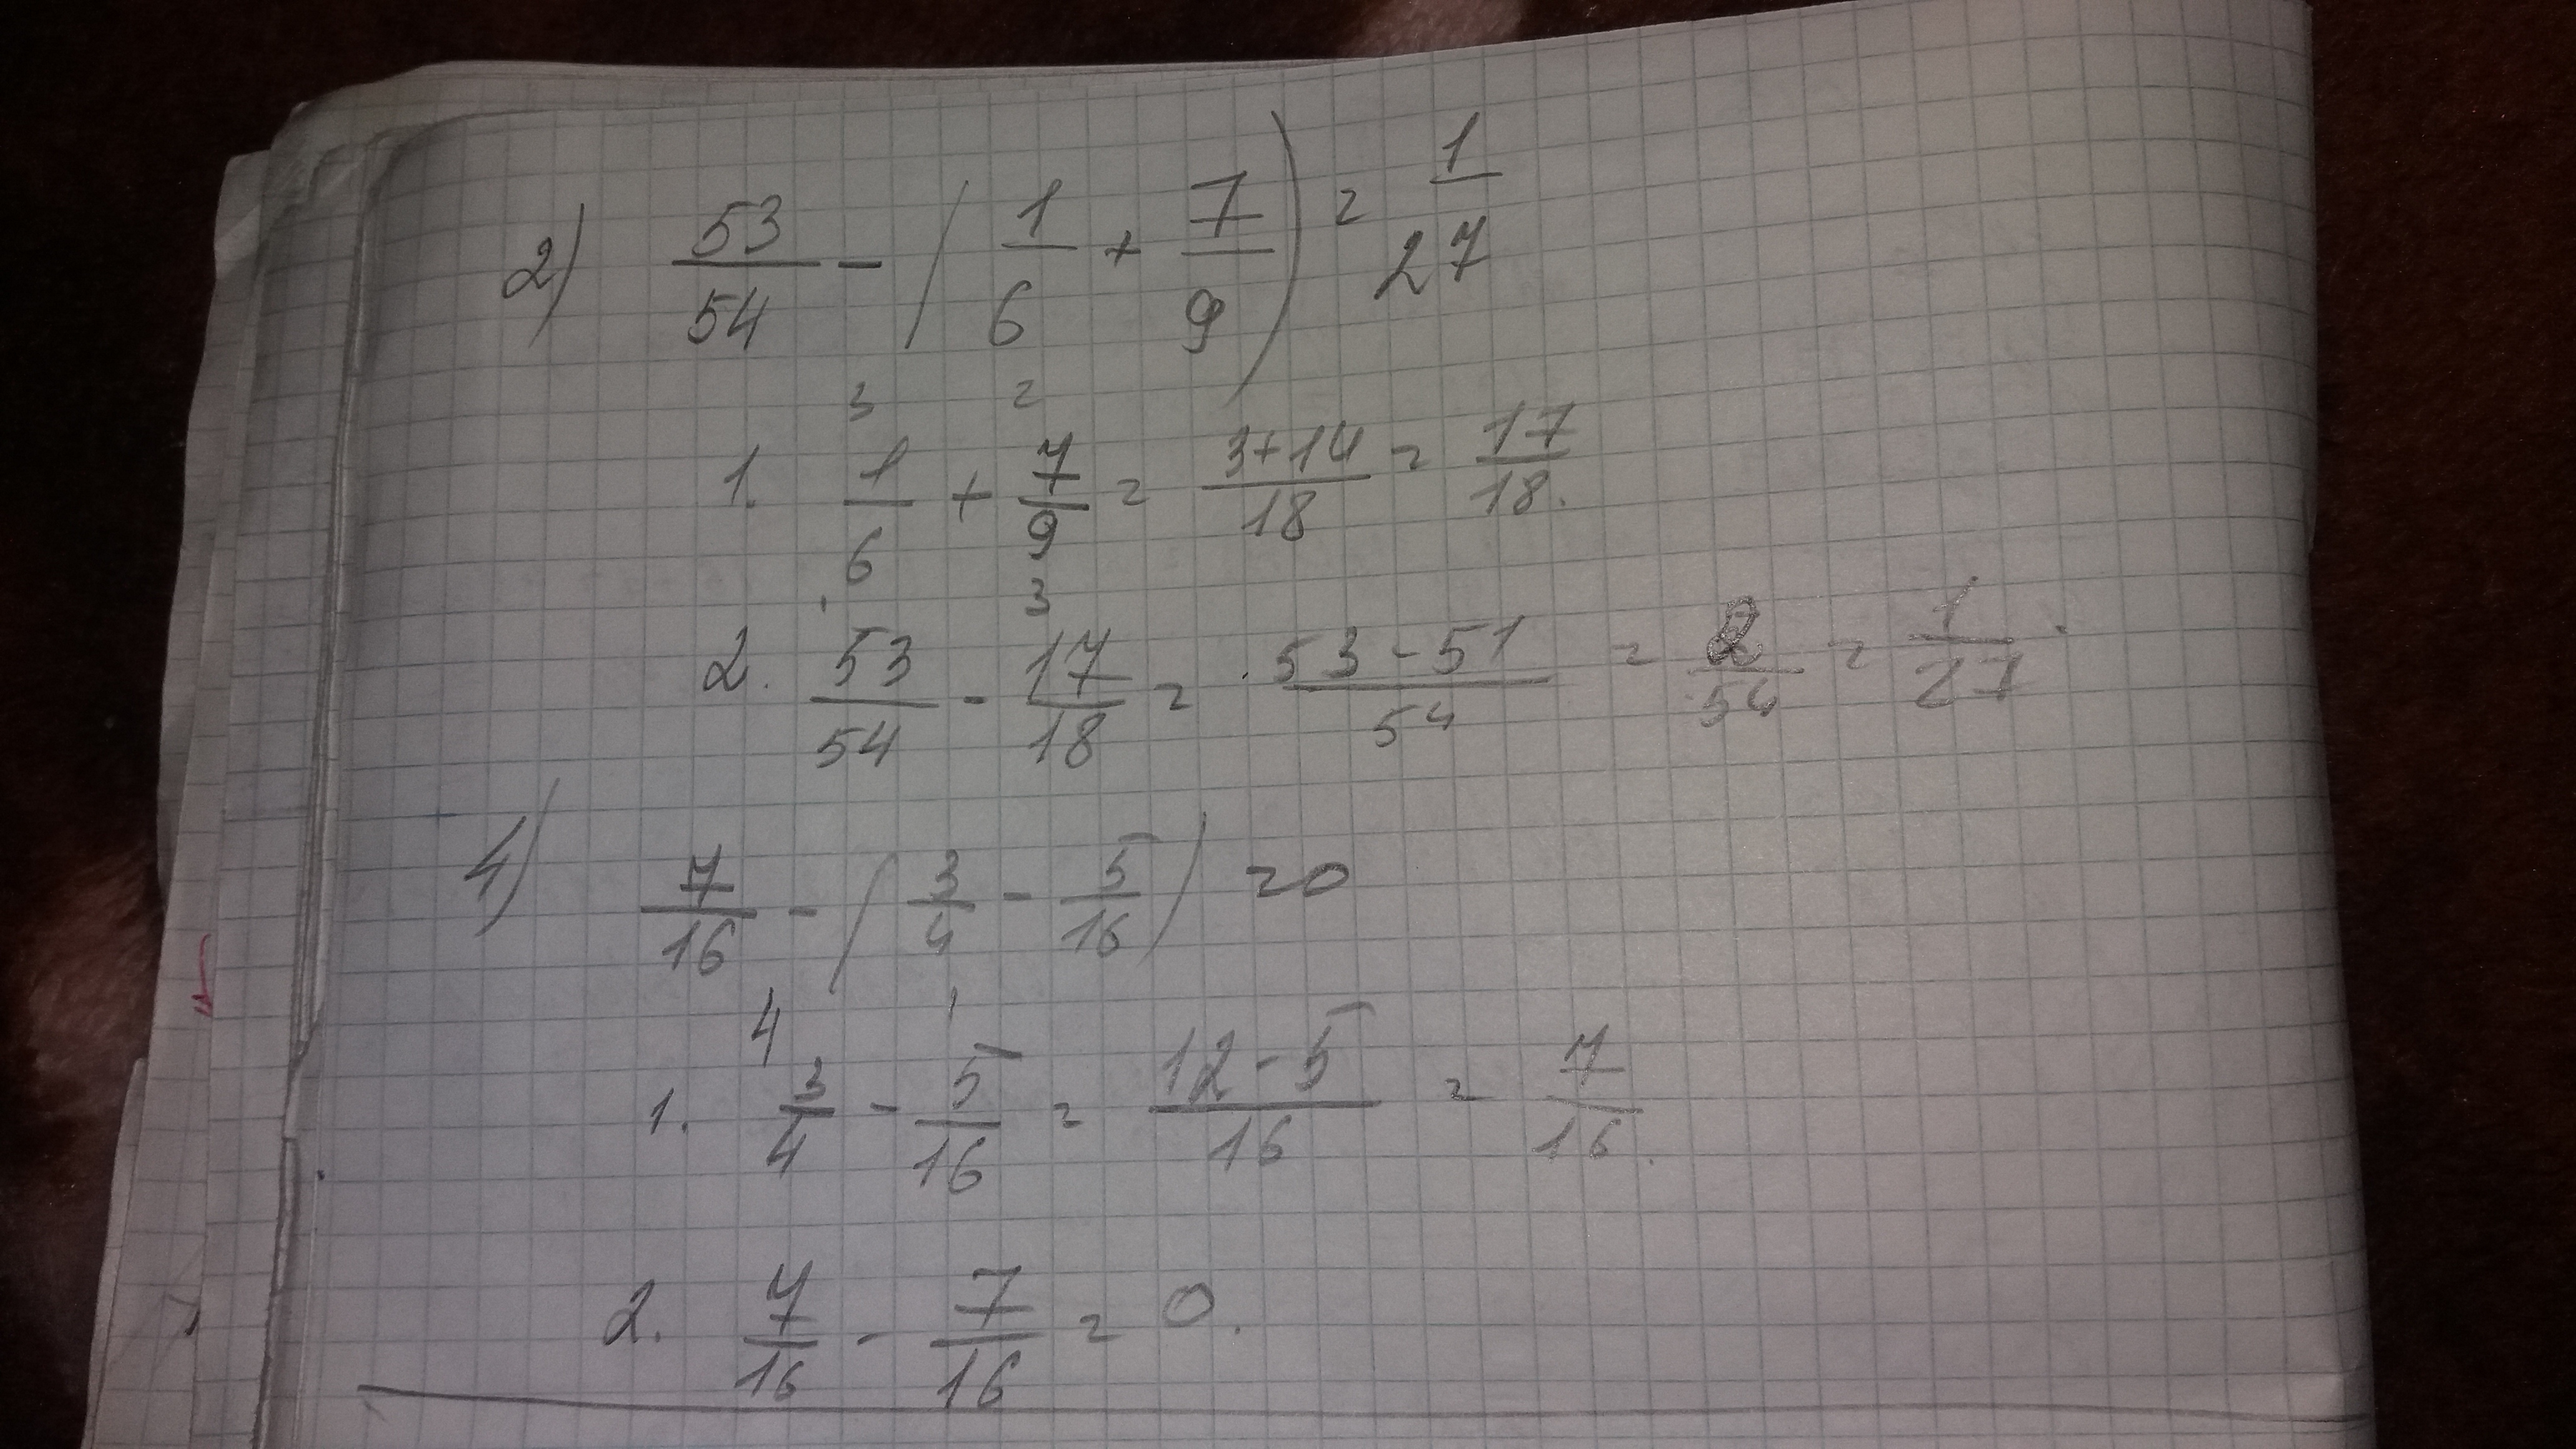 2) 53/54 - (1/6 + 7/9) = 1/27
3 2
1. 1/6 + 7/9 = 3+14/18 = 17/18.
3
2. 53/54 - 17/18 = 53-51/54 = 2/54 = 1/27.
4) 7/16 - (3/4 - 5/16) = 0
4 1
1. 3/4 - 5/16 = 12-5/16 = 7/16.
2. 7/16 - 7/16 = 0.